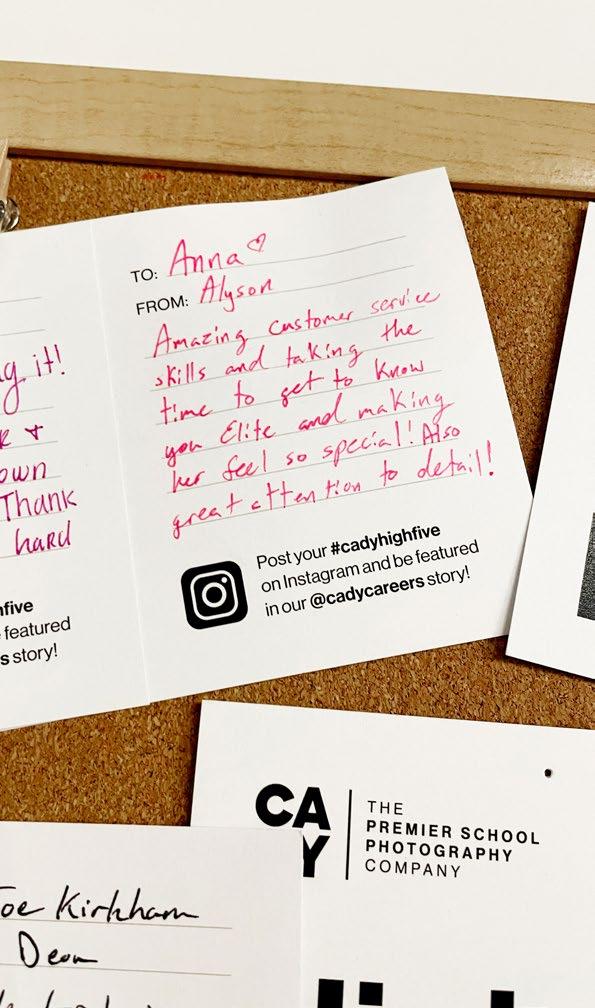 TO: Anna ♡
FROM: Alyson
Amazing customer service
skills and taking the
time to get to know
you Elite and making
her feel so special! Also
great attention to detail!
Post your #cadyhighfive
on Instagram and be featured
in our @cadycareers story!
it!
own
Thank
hard
featured
story!
CA
Y
THE
PREMIER SCHOOL
PHOTOGRAPHY
COMPANY
Kirkham